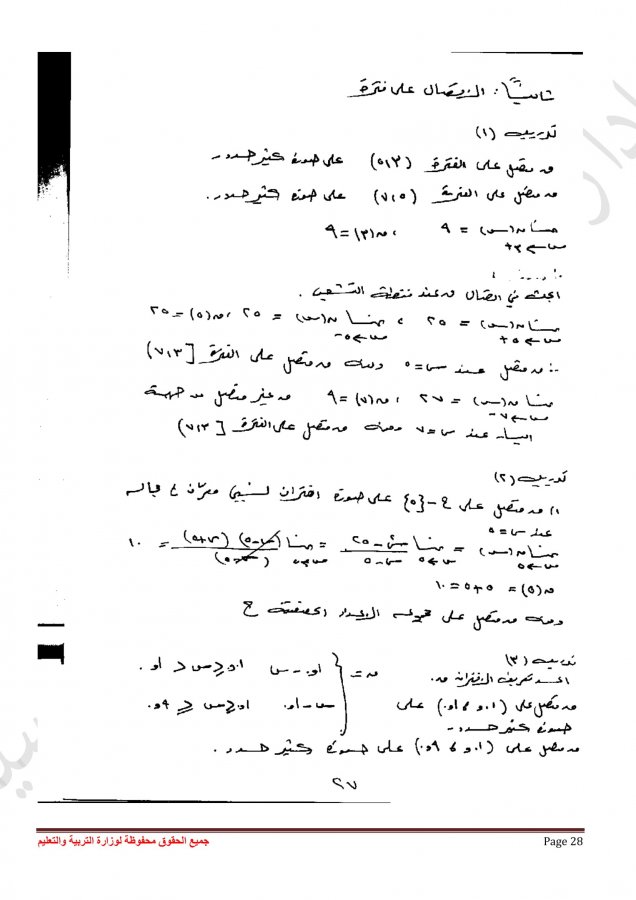 ثانياً : الاتصال على فترة
تدريب (١)
ق متصل على الفترة (٥،٣) على صورة كثير حدود
ق متصل على الفترة (٧،٥) على صورة كثير حدود.
نهــا ق(س) = ٩ ، ق(٣) = ٩
س←٣+
ابحث في اتصال ق عند نقطة التشعب .
نهــا ق(س) = ٢٥ ، نهــا ق(س) = ٢٥ ، ق(٥) = ٢٥
س←٥+ س←٥-
∴ ق متصل عند س=٥ ومنه ق متصل على الفترة [٧،٣)
نهــا ق(س) = ٢٧ ، ق(٧) = ٩ ق غير متصل من جهة
س←٧-
اليسار عند س=٧ ومنه ق متصل على الفترة [٧،٣)
تدريب (٢)
١) ق متصل على ح -{٥} على صورة اقتران نسبي معرف في مجاله
عند س=٥
نهــا ق(س) = نهــا س²-٢٥ / س-٥ = نهــا (س-٥)(س+٥) / (س-٥) = ١٠
س←٥ س←٥ س←٥
ق(٥) = ٥+٥ = ١٠
ومنه ق متصل على مجموعة الأعداد الحقيقية ح
تدريب (٣)
أعد تعريف الاقتران ق.
ق متصل على على
صورة كثير حدود
ق متصل على على صورة كثير حدود .
٢٧
جميع الحقوق محفوظة لوزارة التربية والتعليم
Page 28